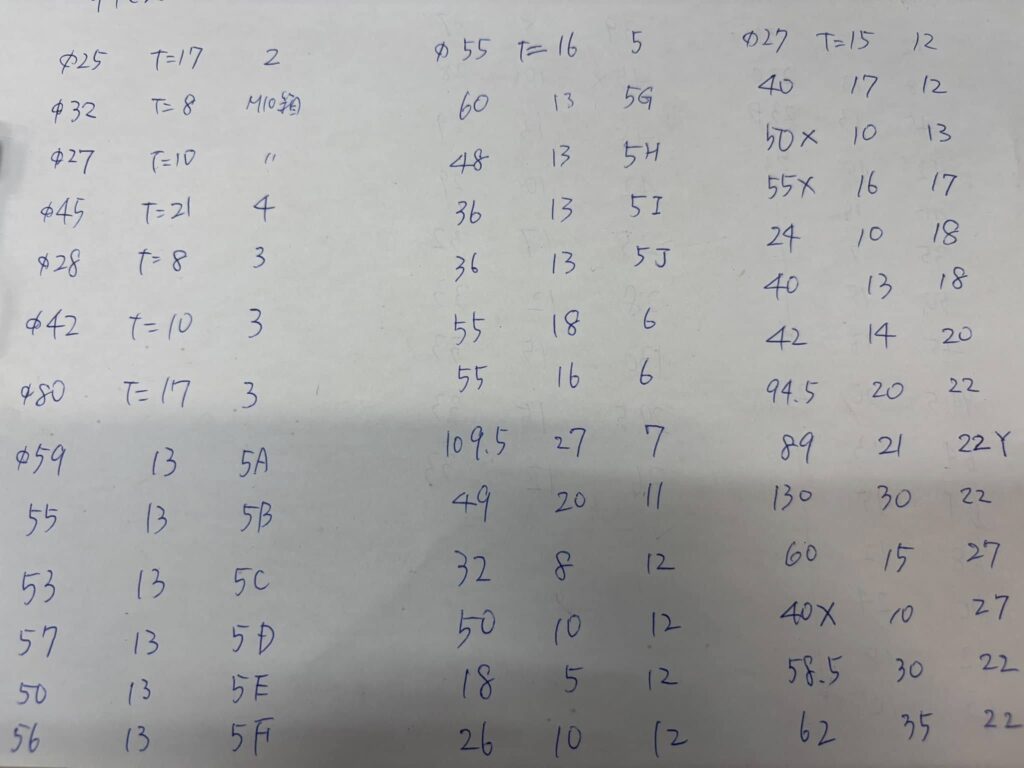 φ25 T=17 2
φ32 T=8 M10箱
φ27 T=10 〃
φ45 T=21 4
φ28 T=8 3
φ42 T=10 3
φ80 T=17 3
φ59 13 5A
55 13 5B
53 13 5C
57 13 5D
50 13 5E
56 13 5F
φ55 T=16 5
60 13 5G
48 13 5H
36 13 5I
36 13 5J
55 18 6
55 16 6
109.5 27 7
49 20 11
32 8 12
50 10 12
18 5 12
26 10 12
φ27 T=15 12
40 17 12
50X 10 13
55X 16 17
24 10 18
40 13 18
42 14 20
94.5 20 22
89 21 22Y
130 30 22
60 15 27
40X 10 27
58.5 30 22
62 35 22